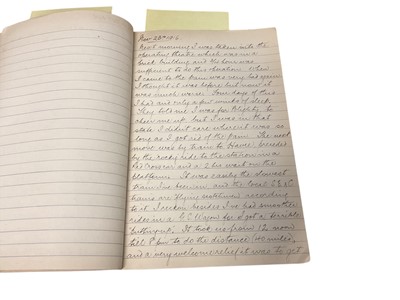 Nov 23rd
Next morning I was taken into the
theatre which was in a
building and the hour was
sufficient to do the
I came to the pain was very bad again
I thought it was before but now it
was much worse. Four days of this
I had on only a few winks of sleep
They told me I was for Blighty to
cheer me up, but I was in that
state I didn't care where it was so
long as I got rid of the pain. The next
move was by train to Havre, preceded
by the rocky ride to the station in a
Red Cross car and a 2 hrs wait on the
platform. It was easily the slowest
train I've been in and the local
trains are flying machines according
to it. I reckon besides I've had smoother
rides in a G.S. Wagon for I got a terrible
buffeting. It took us from 12 noon
till 8 pm to do the distance 40 miles,
and a very welcome relief it was to get